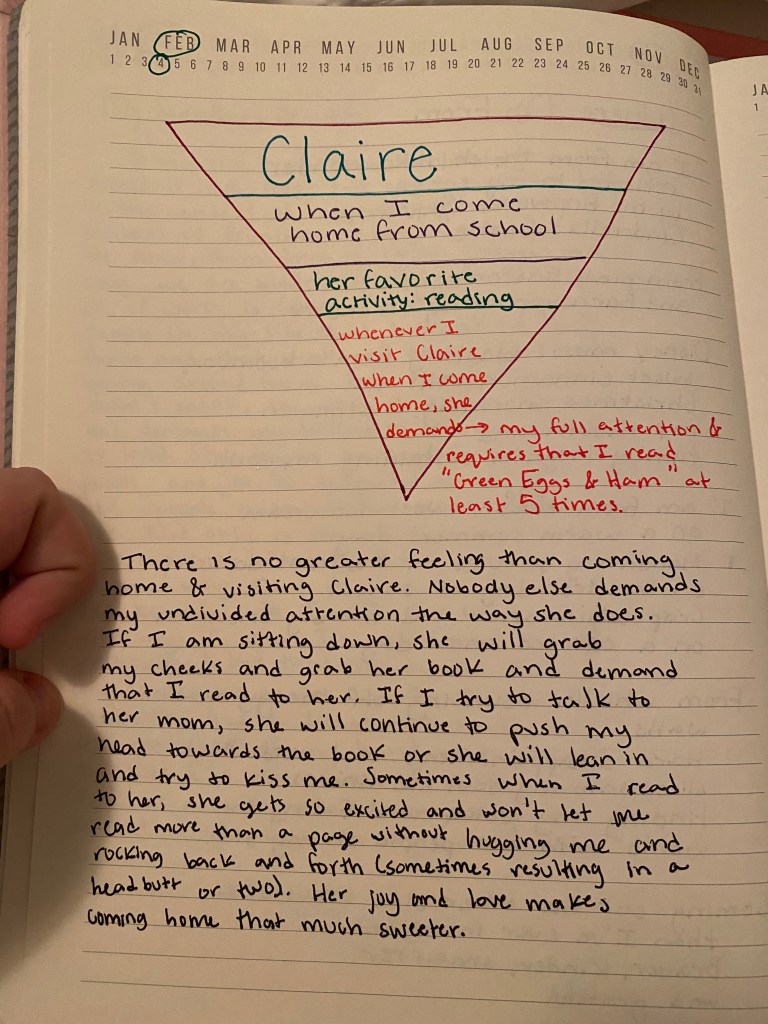 JAN FEB MAR APR MAY JUN JUL AUG SEP OCT NOV DEC
1 2 3 4 5 6 7 8 9 10 11 12 13 14 15 16 17 18 19 20 21 22 23 24 25 26 27 28 29 30 31
Claire
when I come
home from school
her favorite
activity: reading
whenever I
visit Claire
when I come
home, she
demands → my full attention &
requires that I read
"Green Eggs & Ham" at
least 5 times.
There is no greater feeling than coming
home & visiting Claire. Nobody else demands
my undivided attention the way she does.
If I am sitting down, she will grab
my cheeks and grab her book and demand
that I read to her. If I try to talk to
her mom, she will continue to push my
head towards the book or she will lean in
and try to kiss me. Sometimes when I read
to her, she gets so excited and won't let me
read more than a page without hugging me and
rocking back and forth (sometimes resulting in a
headbutt or two). Her joy and love makes
coming home that much sweeter.
JA
1